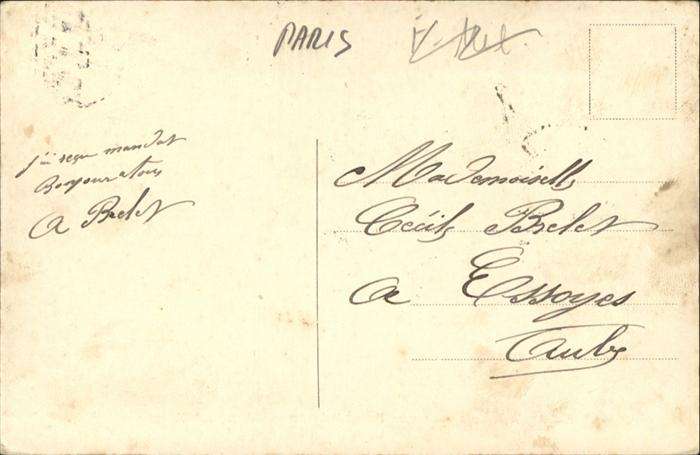 PARIS
j'ai reçu mandat
Bonjour a tous
A Brelet
Mademoiselle
Cécile Brelet
A Essoyes
Aube